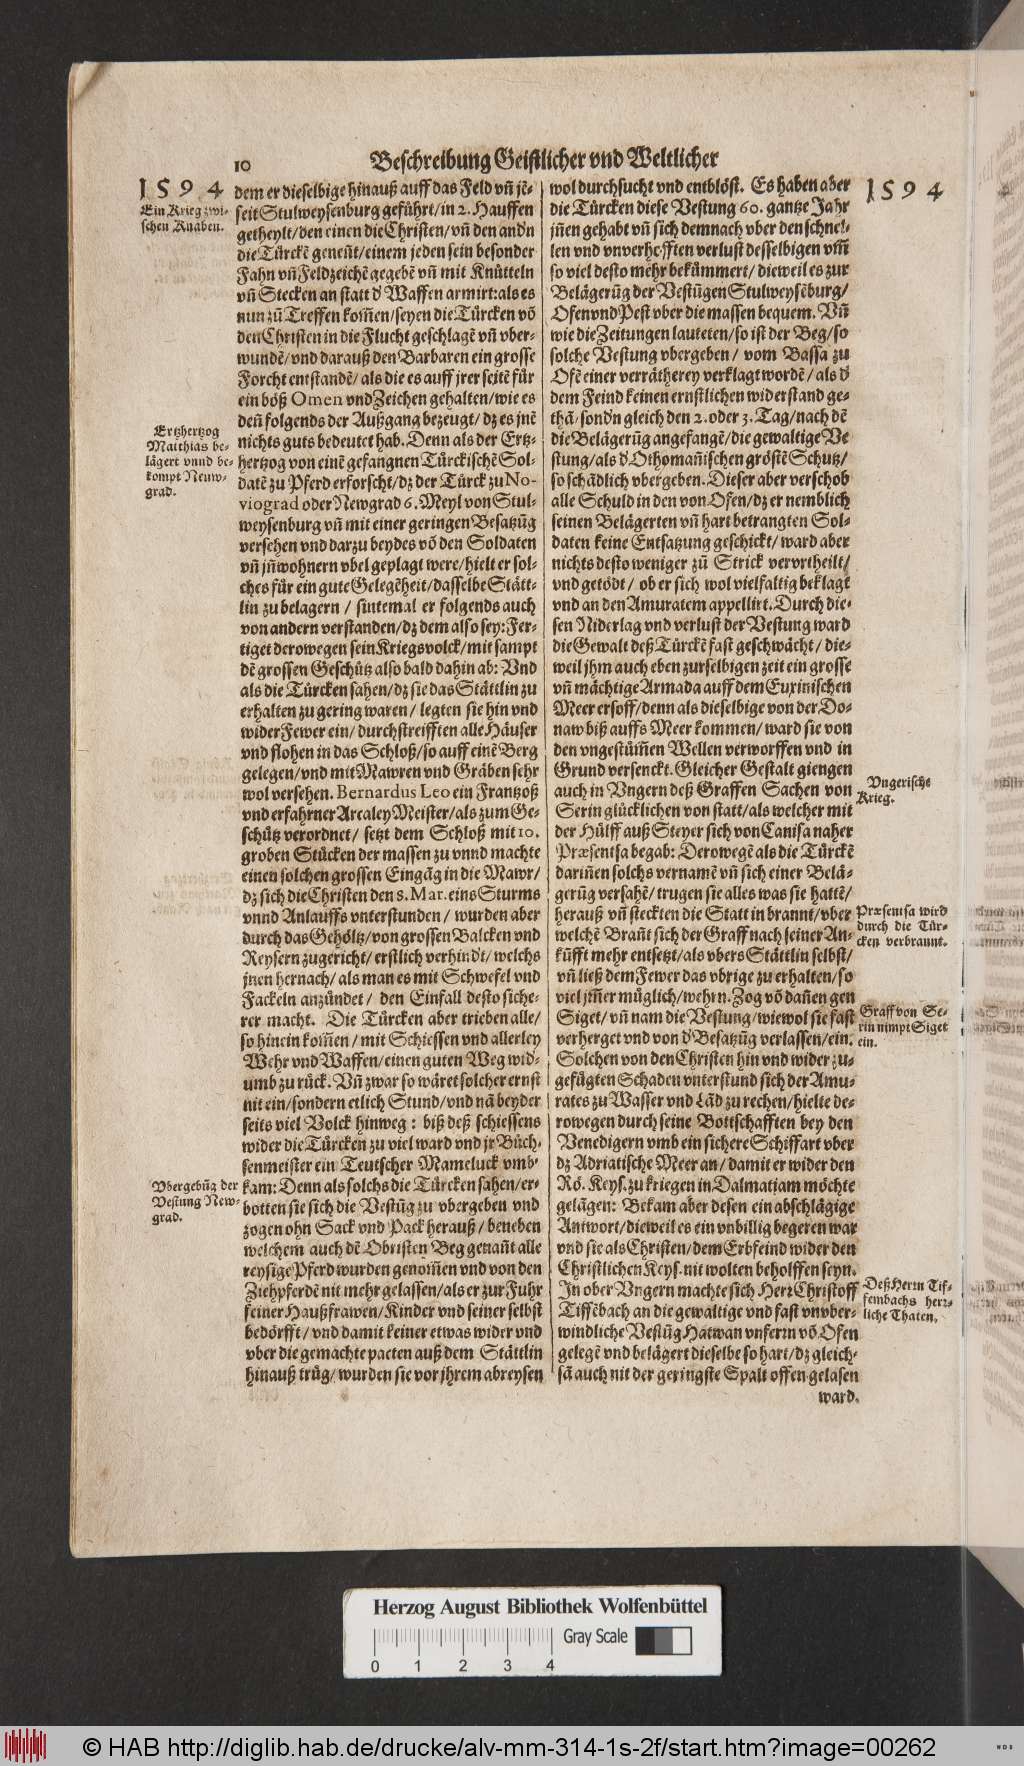 10 Beschreibung Geistlicher vnd Weltlicher
1594
Ein Krieg zwi-
schen Knaben.
dem er dieselbige hinauß auff das Feld vñ je-
seit Stulweysenburg geführt/in 2. Hauffen
getheylt/den einen die Christen/vñ den andn
die Türckē geneñt/einem jeden sein besonder
Fahn vñ Feldzeichē gegebē vñ mit Knütteln
vñ Stecken an statt d Waffen armirt: als es
nun zū Treffen kom̃en/seyen die Türcken võ
den Christen in die Flucht geschlagē vñ vber-
wundē/vnd darauß den Barbaren ein grosse
Forcht entstandē/als die es auff jrer seitē für
ein böß Omen vnd Zeichen gehalten/wie es
deñ folgends der Außgang bezeugt/dz es jnē
nichts guts bedeutet hab. Denn als der Ertz-
Ertzhertzog
Matthias be-
lägert vnnd be-
kompt Neuw-
grad.
hertzog von einē gefangnen Türckischē Sol-
datē zu Pferd erforscht/dz der Türck zu No-
viograd oder Newgrad 6. Meyl von Stul-
weysenburg vñ mit einer geringen Besatzūg
versehen vnd darzu beydes võ den Soldaten
vñ jñwohnern vbel geplagt were/hielt er sol-
ches für ein gute Gelegēheit/dasselbe Stätt-
lin zu belagern / sintemal er folgends auch
von andern verstanden/dz dem also sey: Fer-
tiget derowegen sein Kriegsvolck/mit sampt
dē grossen Geschütz also bald dahin ab: Vnd
als die Türcken sahen/dz sie das Stättlin zu
erhalten zu gering waren/ legten sie hin vnd
wider Fewer ein/durchstreifften alle Häuser
vnd flohen in das Schloß/so auff einē Berg
gelegen/vnd mit Mawren vnd Gräben sehr
wol versehen. Bernardus Leo ein Frantzoß
vnd erfahrner Arcaley Meister/als zum Ge-
schütz verordnet/ setzt dem Schloß mit 10.
groben Stücken der massen zu vnnd machte
einen solchen grossen Eingāg in die Mawr/
dz sich die Christen den 8. Mar. eins Sturms
vnnd Anlauffs vnterstunden / wurden aber
durch das Gehöltz/von grossen Balcken vnd
Reysern zugericht/ erstlich verhindt/ welchs
jnen hernach/als man es mit Schwefel vnd
Fackeln anzündet/ den Einfall desto siche-
rer macht. Die Türcken aber trieben alle/
so hinein kom̃en/ mit Schiessen vnd allerley
Wehr vnd Waffen/einen guten Weg wid-
umb zu rück. Vñ zwar so wäret solcher ernst
nit ein/sondern etlich Stund/vnd nā beyder
seits viel Volck hinweg: biß deß schiessens
wider die Türcken zu viel ward vnd jr Büch-
senmeister ein Teutscher Mameluck vmb-
Vbergebūg der
Vestung New-
grad.
kam: Denn als solchs die Türcken sahen/er-
botten sie sich die Vestūg zu vbergeben vnd
zogen ohn Sack vnd Pack herauß/ beneben
welchem auch dē Obristen Beg genañt alle
reysige Pferd wurden genom̃en vnd von den
Ziehpferdē nit mehr gelassen/als er zur Fuhr
seiner Haußfrawen/Kinder vnd seiner selbst
bedörfft/ vnd damit keiner etwas wider vnd
vber die gemachte pacten auß dem Stättlin
hinauß trüg/ wurden sie vor jhrem abreysen
1594
wol durchsucht vnd entblöst. Es haben aber
die Türcken diese Vestung 60. gantze Jahr
jñen gehabt vñ sich demnach vber den schnel-
len vnd vnverhofften verlust desselbigen vm̃
so viel desto mehr bekümmert/ dieweil es zur
Belägerūg der Vestūgen Stulweysēburg/
Ofen vnd Pest vber die massen bequem. Vñ
wie die Zeitungen lauteten/so ist der Beg/so
solche Vestung vbergeben/ vom Bassa zu
Ofē einer verrätherey verklagt wordē/als d
dem Feind keinen ernstlichen widerstand ge-
thā/sondn gleich den 2. oder 3. Tag/nach dē
die Belägerūg angefangē/die gewaltige Ve
stung/als d Othomañischen gröstē Schutz/
so schädlich vbergeben. Dieser aber verschob
alle Schuld in den von Ofen/dz er nemblich
seinen Belägerten vñ hart betrangten Sol-
daten keine Entsatzung geschickt/ ward aber
nichts desto weniger zū Strick vervrtheilt/
vnd getödt/ ob er sich wol vielfaltig beklagt
vnd an den Amuratem appellirt. Durch die-
sen Niderlag vnd verlust der Vestung ward
die Gewalt deß Türckē fast geschwächt/ die-
weil jhm auch eben zurselbigen zeit ein grosse
vñ mächtige Armada auff dem Euxinischen
Meer ersoff/denn als dieselbige von der Do-
naw biß auffs Meer kommen/ ward sie von
den vngestüm̃en Wellen verworffen vnd in
Grund versenckt. Gleicher Gestalt giengen
Vngerische
Krieg.
auch in Vngern deß Graffen Sachen von
Serin glücklichen von statt/als welcher mit
der Hülff auß Steyer sich von Canisa naher
Præsentsa begab: Derowegē als die Türckē
dariñen solchs vernamē vñ sich einer Belä-
gerūg versahē/ trugen sie alles was sie hattē/
Præsentsa wird
durch die Tür-
cken verbrannt.
herauß vñ steckten die Statt in brannt/vber
welchē Brañt sich der Graff nach seiner An-
kūfft mehr entsetzt/als vbers Stättlin selbst/
vñ ließ dem Fewer das vbrige zu erhalten/so
viel jm̃er müglich/wehrn. Zog võ dañen gen
Graff von Se-
rin nimpt Siget
ein.
Siget/ vñ nam die Vestung/wiewol sie fast
verherget vnd von d Besatzūg verlassen/ein.
Solchen von den Christen hin vnd wider zu-
gefügten Schaden vnterstund sich der Amu-
rates zu Wasser vnd Lād zu rechen/hielte de-
rowegen durch seine Bottschafften bey den
Venedigern vmb ein sichere Schiffart vber
dz Adriatische Meer an/ damit er wider den
Rö. Keys. zu kriegen in Dalmatiam möchte
gelägen: Bekam aber desen ein abschlägige
Antwort/dieweil es ein vnbillig begeren war
vnd sie als Christen/dem Erbfeind wider den
Christlichen Keys. nit wolten beholffen seyn.
Deß Herrn Tif-
fembachs herr-
liche Thaten.
In ober Vngern machte sich Herr Christoff
Tiffēbach an die gewaltige vnd fast vnvber-
windliche Vestūg Hatwan vnferrn võ Ofen
gelegē vnd belägert dieselbe so hart/dz gleich-
sā auch nit der geringste Spalt offen gelasen
ward.
Herzog August Bibliothek Wolfenbüttel
Gray Scale
0 1 2 3 4
© HAB http://diglib.hab.de/drucke/alv-mm-314-1s-2f/start.htm?image=00262